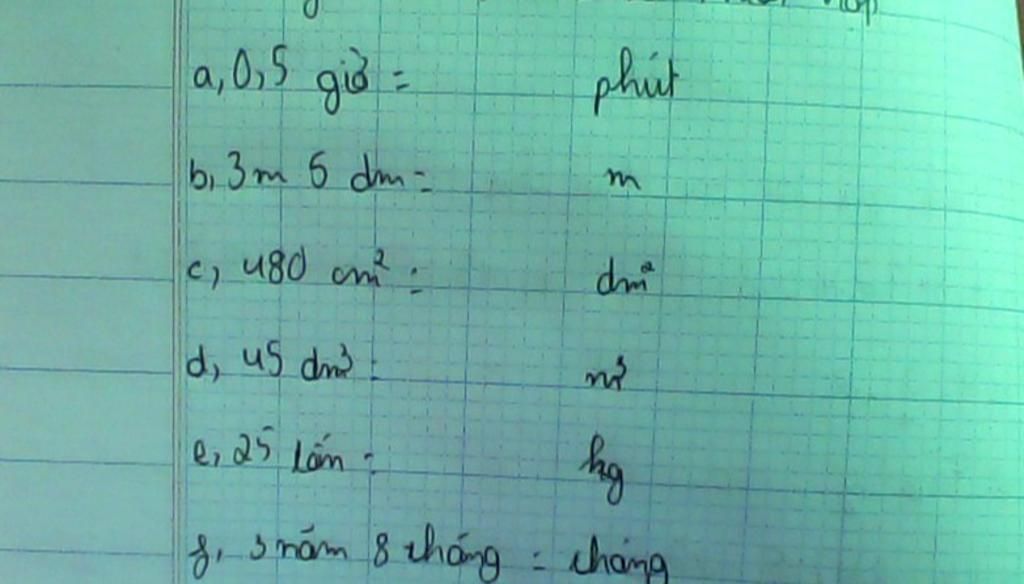 a, 0,5 giờ = phút
b, 3m 5 dm = m
c, 480 cm² = dm²
d, 45 dm³ = m³
e, 25 tấn = kg
f, 3 năm 8 tháng = tháng